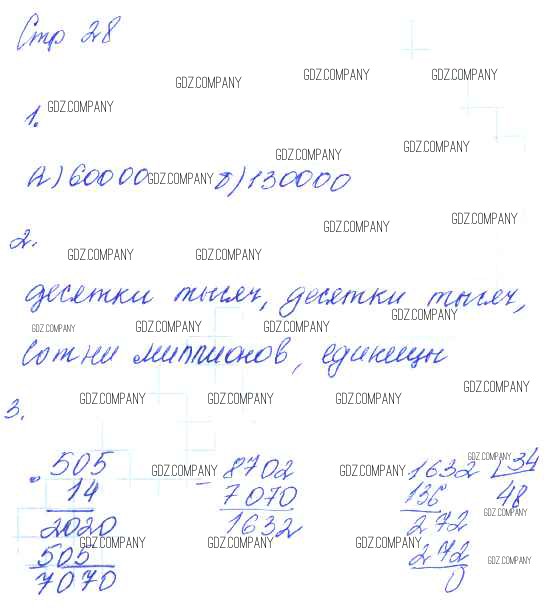 Стр 28
GDZ.COMPANY GDZ.COMPANY GDZ.COMPANY
1. GDZ.COMPANY
GDZ.COMPANY GDZ.COMPANY
А) 60000 GDZ.COMPANY б) 130000
2. GDZ.COMPANY GDZ.COMPANY
GDZ.COMPANY GDZ.COMPANY
десятки тысяч, десятки тысяч,
GDZ.COMPANY GDZ.COMPANY GDZ.COMPANY GDZ.COMPANY
сотни миллионов, единицы
GDZ.COMPANY
3. GDZ.COMPANY GDZ.COMPANY GDZ.COMPANY
505
· 14
2020
505
7070
GDZ.COMPANY
- 8702
7070
1632
GDZ.COMPANY GDZ.COMPANY
1632 34
136 48
272
272
0
GDZ.COMPANY
GDZ.COMPANY GDZ.COMPANY GDZ.COMPANY GDZ.COMPANY